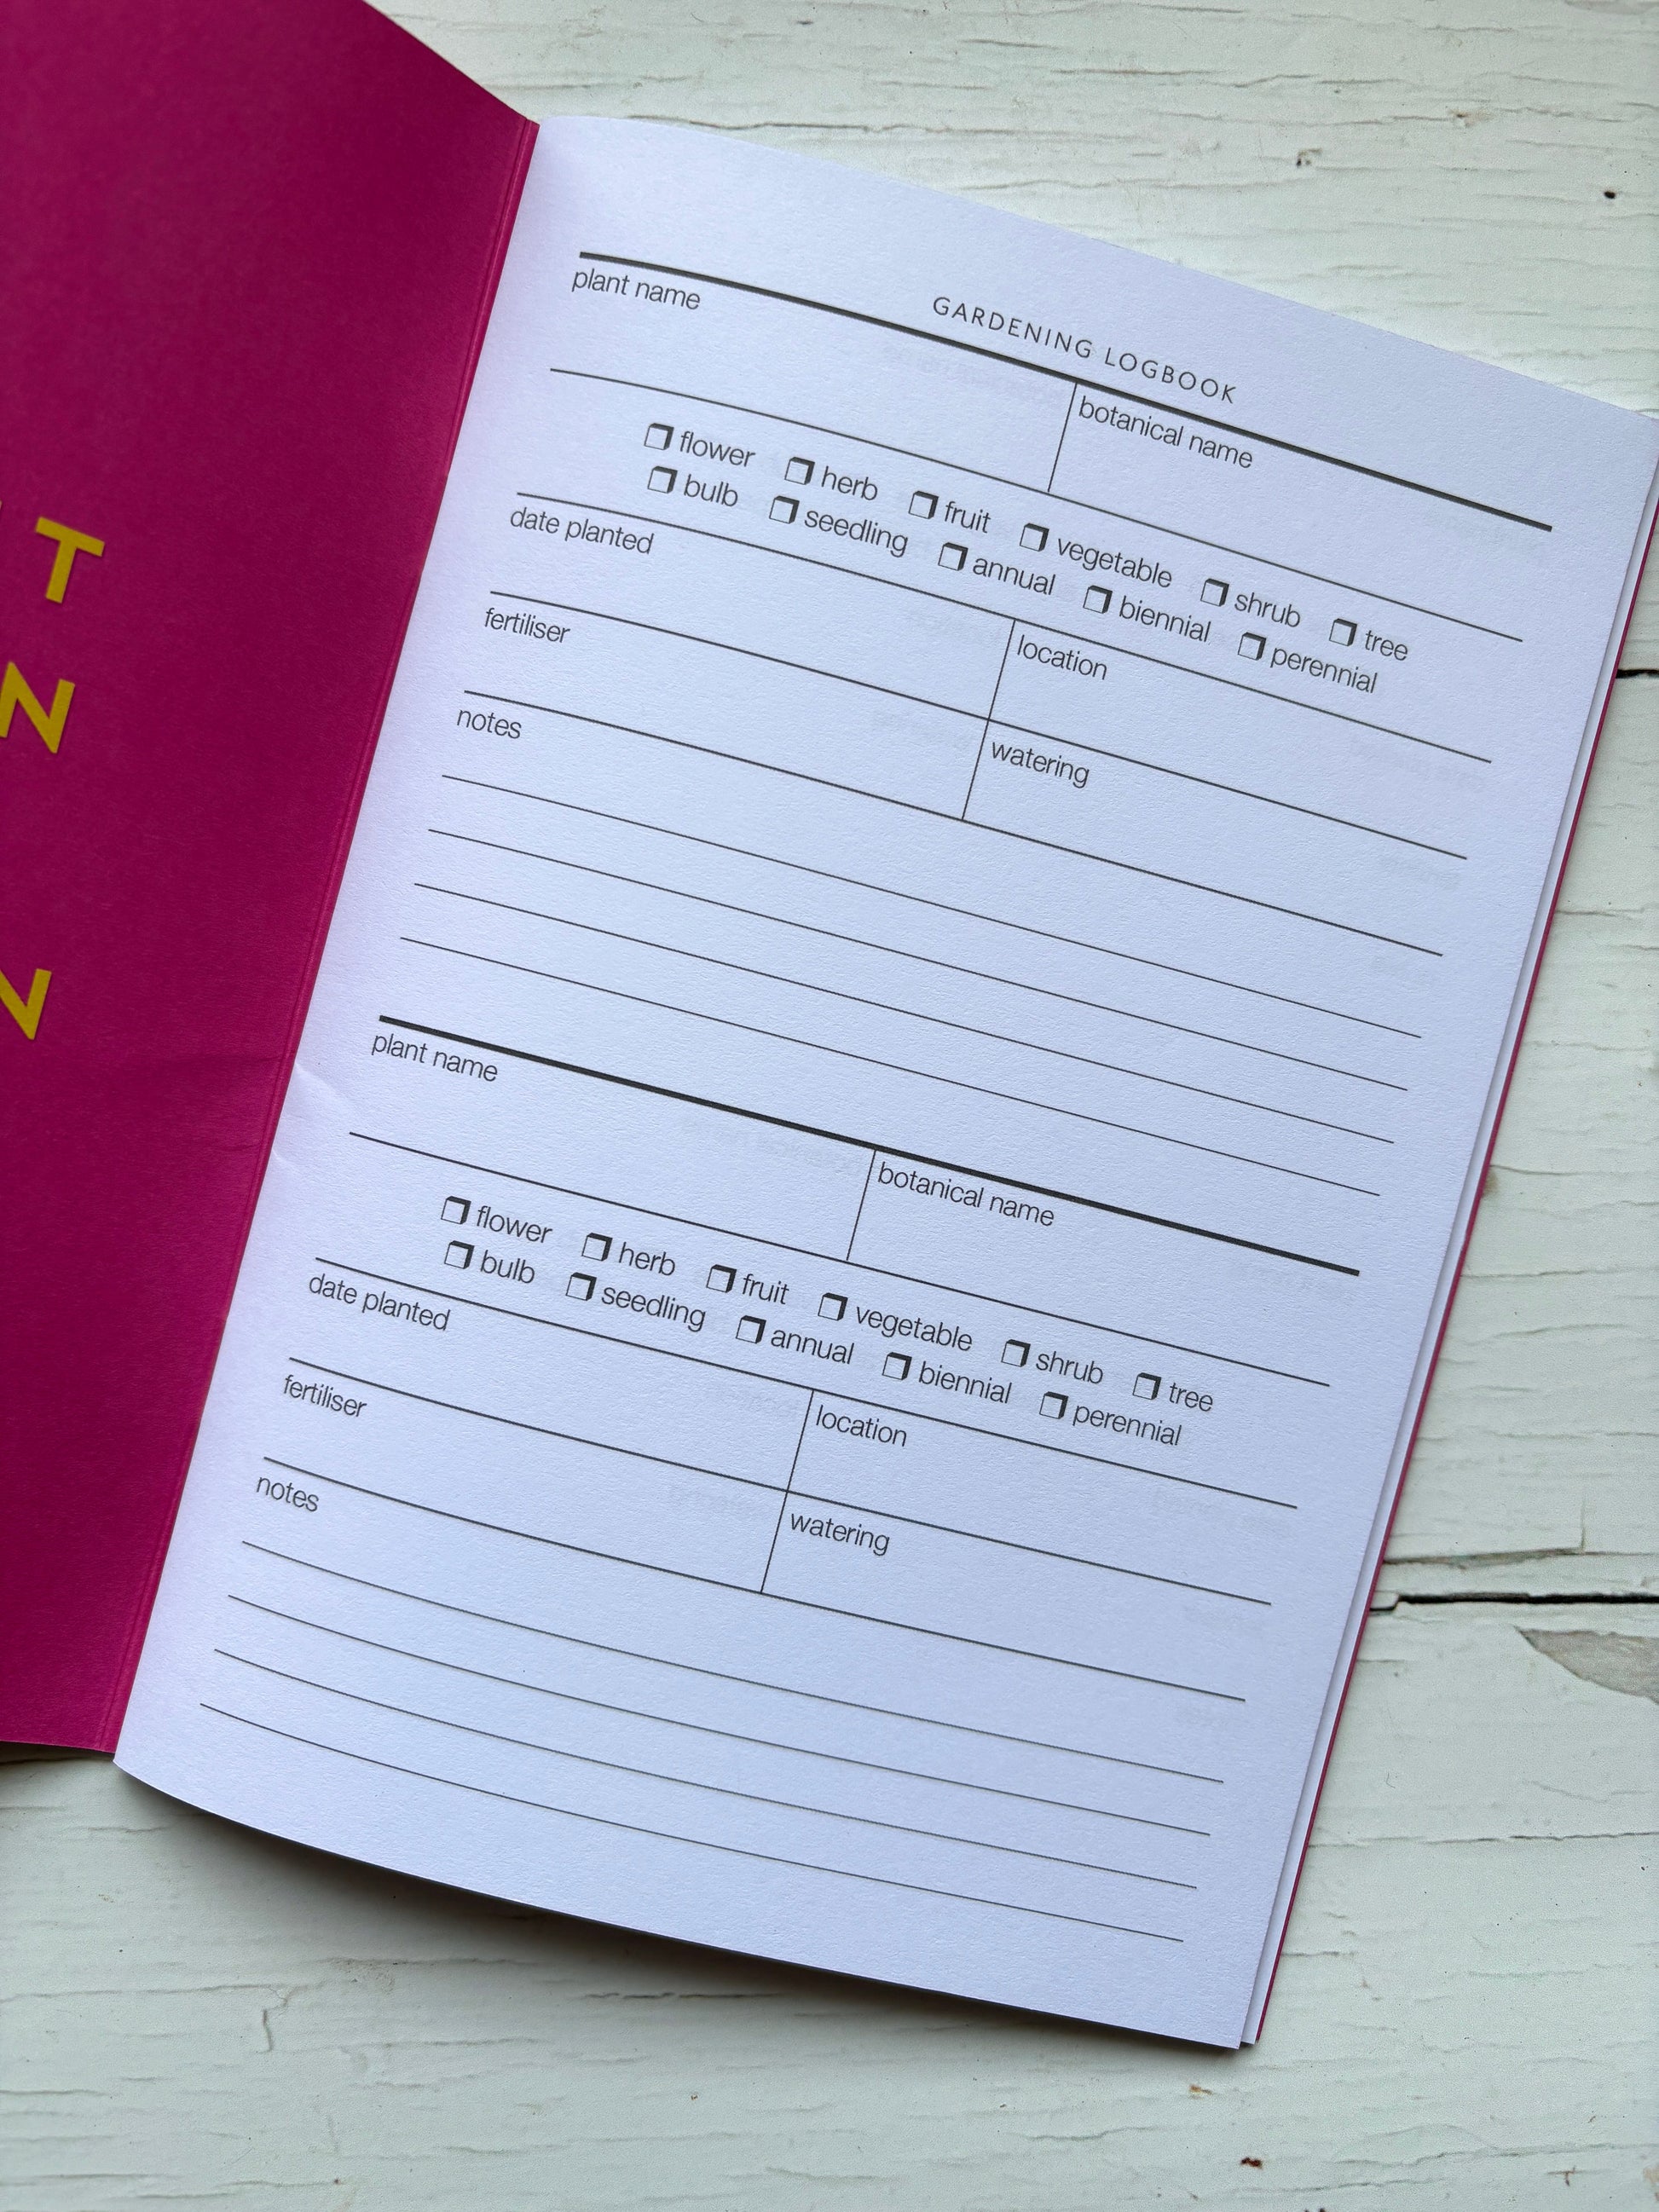 T
N
N
GARDENING LOGBOOK
plant name
botanical name
flower herb fruit vegetable shrub tree
bulb seedling annual biennial perennial
date planted
location
fertiliser
watering
notes
plant name
botanical name
flower herb fruit vegetable shrub tree
bulb seedling annual biennial perennial
date planted
location
fertiliser
watering
notes